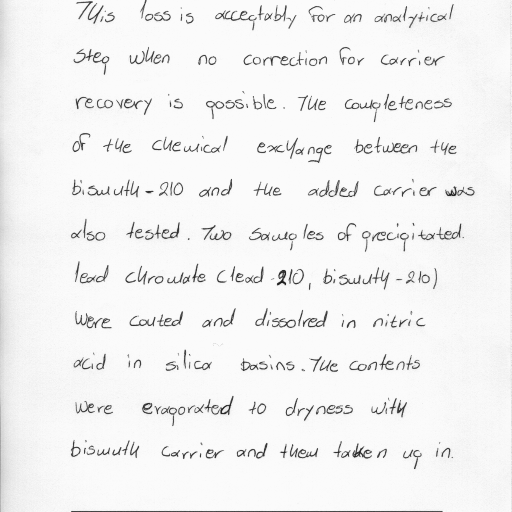 This loss is acceptably for an analytical
step when no correction for carrier
recovery is possible. The completeness
of the chemical exchange between the
bismuth-210 and the added carrier was
also tested. Two samples of precipitated.
lead chromate (lead-210, bismuth-210)
were couted and dissolved in nitric
acid in silica basins. The contents
were evaporated to dryness with
bismuth carrier and then taken up in.